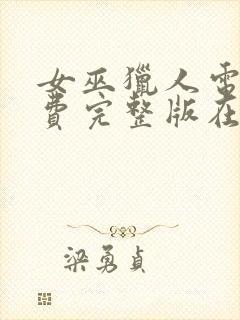 女巫獵人電
費完整版在
梁勇貞